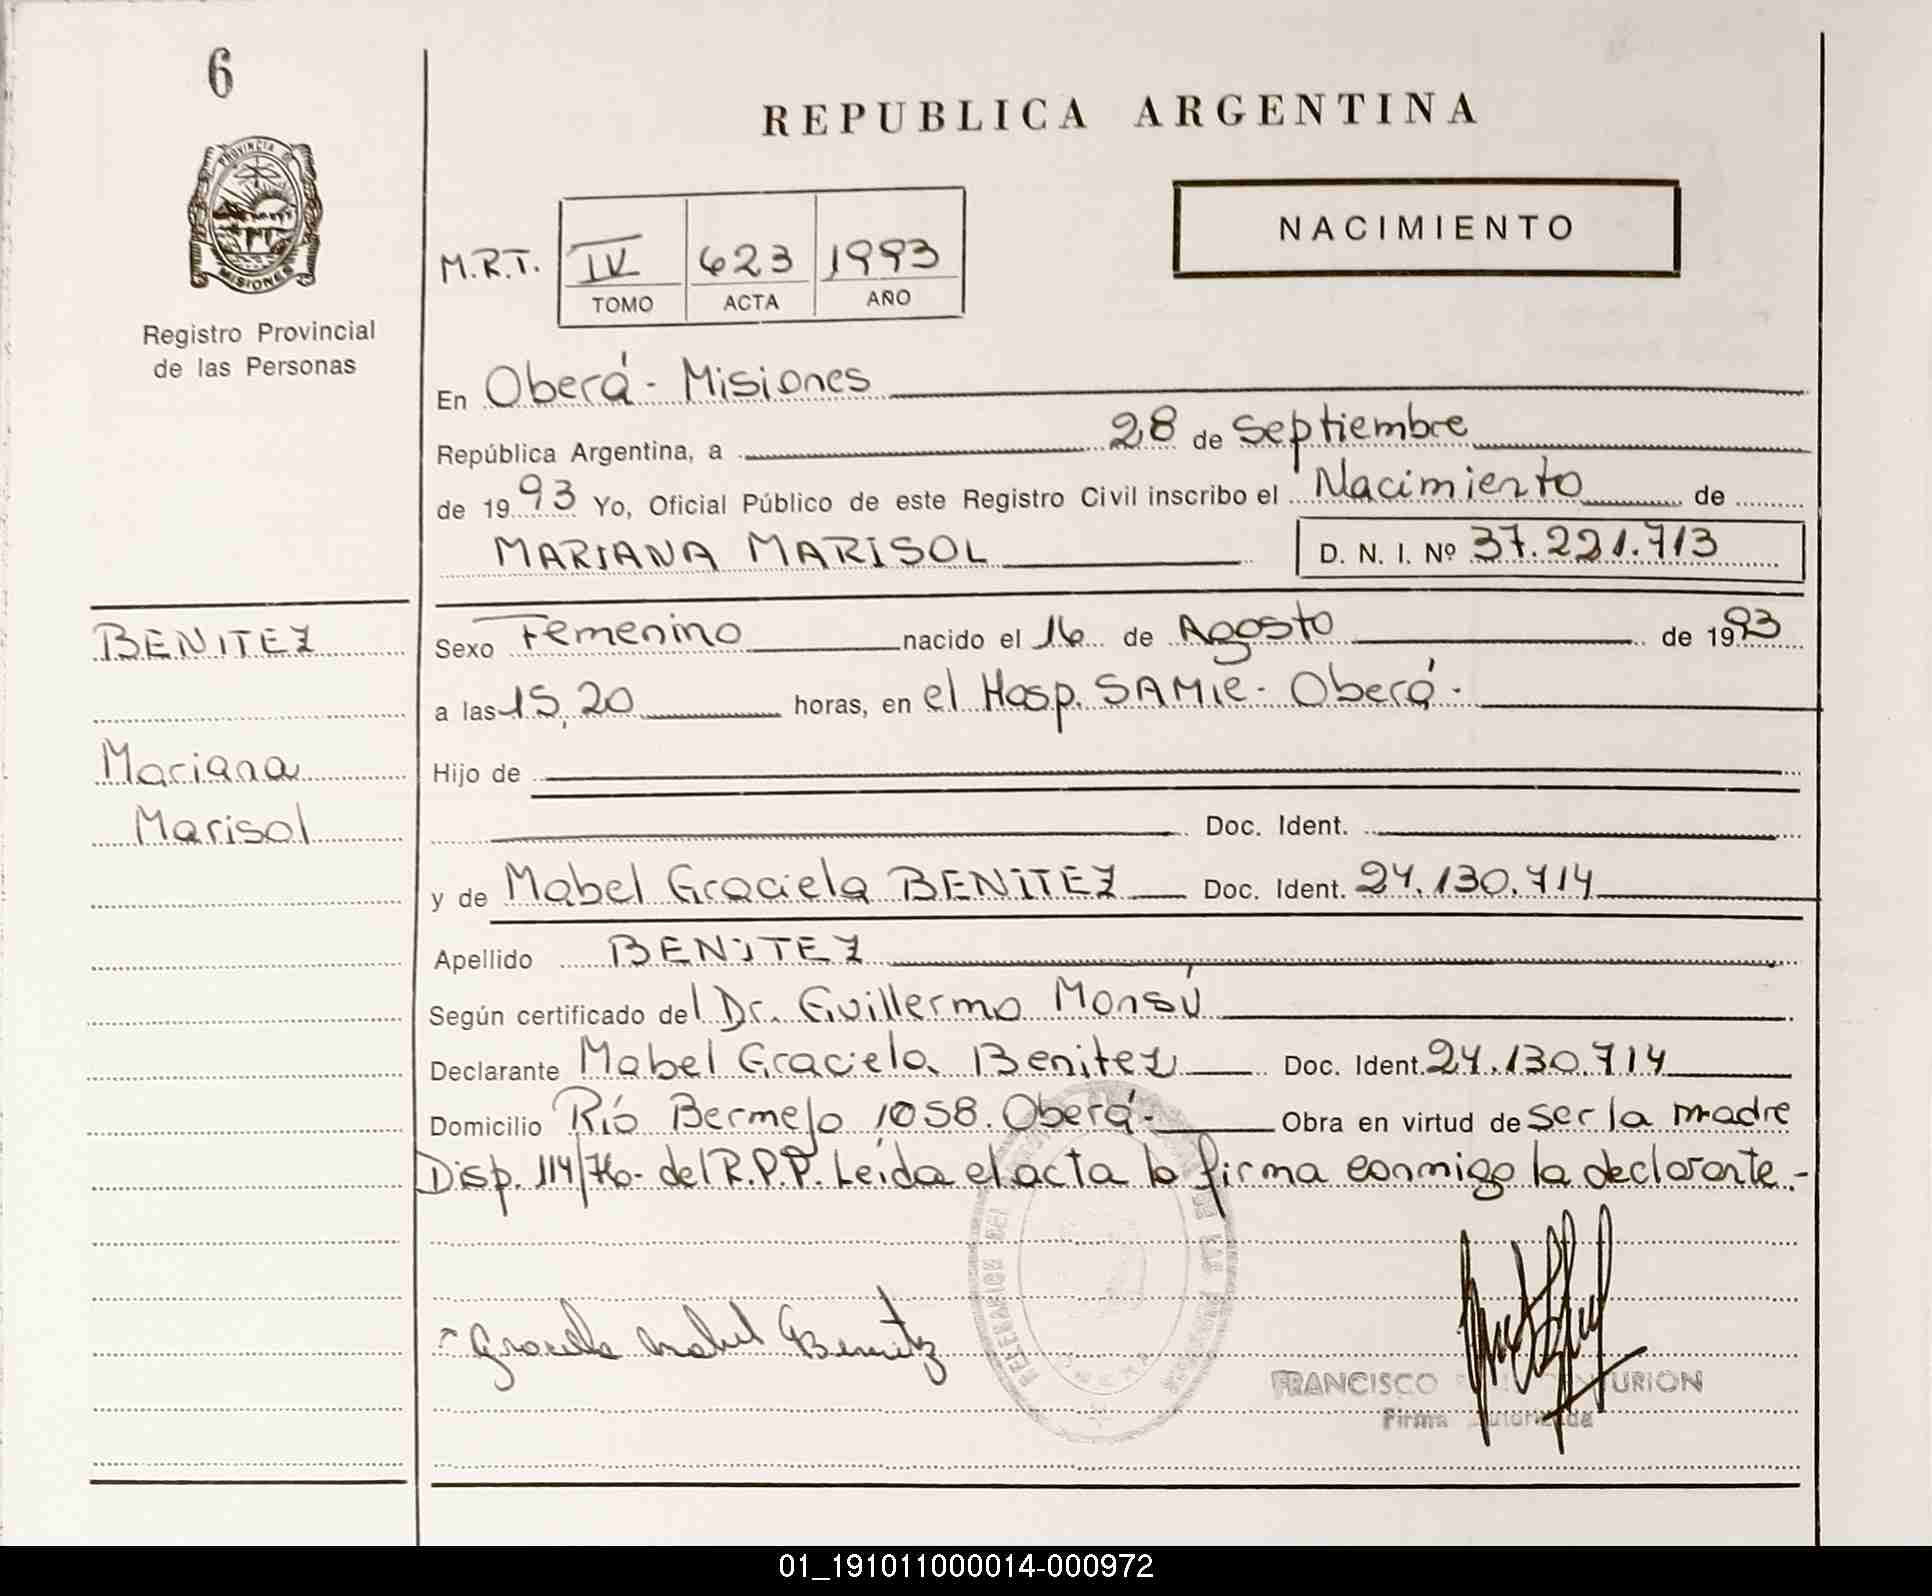 6
REPUBLICA ARGENTINA
PROVINCIA DE
MISIONES
NACIMIENTO
M.R.T. IV 623 1993
TOMO ACTA AÑO
Registro Provincial
de las Personas
En Oberá - Misiones
República Argentina, a 28 de Septiembre
de 1993 Yo, Oficial Público de este Registro Civil inscribo el Nacimiento de
MARIANA MARISOL D. N. I. Nº 37.221.713
BENITEZ
Sexo Femenino nacido el 16 de Agosto de 1993
a las 15,20 horas, en el Hosp. SAMIC - Oberá -
Mariana
Hijo de
Marisol
Doc. Ident.
y de Mabel Graciela BENITEZ Doc. Ident. 24.130.714
Apellido BENITEZ
Según certificado del Dr. Guillermo Monsú
Declarante Mabel Graciela Benitez Doc. Ident. 24.130.714
Domicilio Río Bermejo 1058. Oberá - Obra en virtud de ser la madre
Disp. 114/76 - del R.P.P. Leída el acta la firma conmigo la declarante.-
Graciela Mabel Benitez
FRANCISCO
Firma Autorizada
01_191011000014-000972